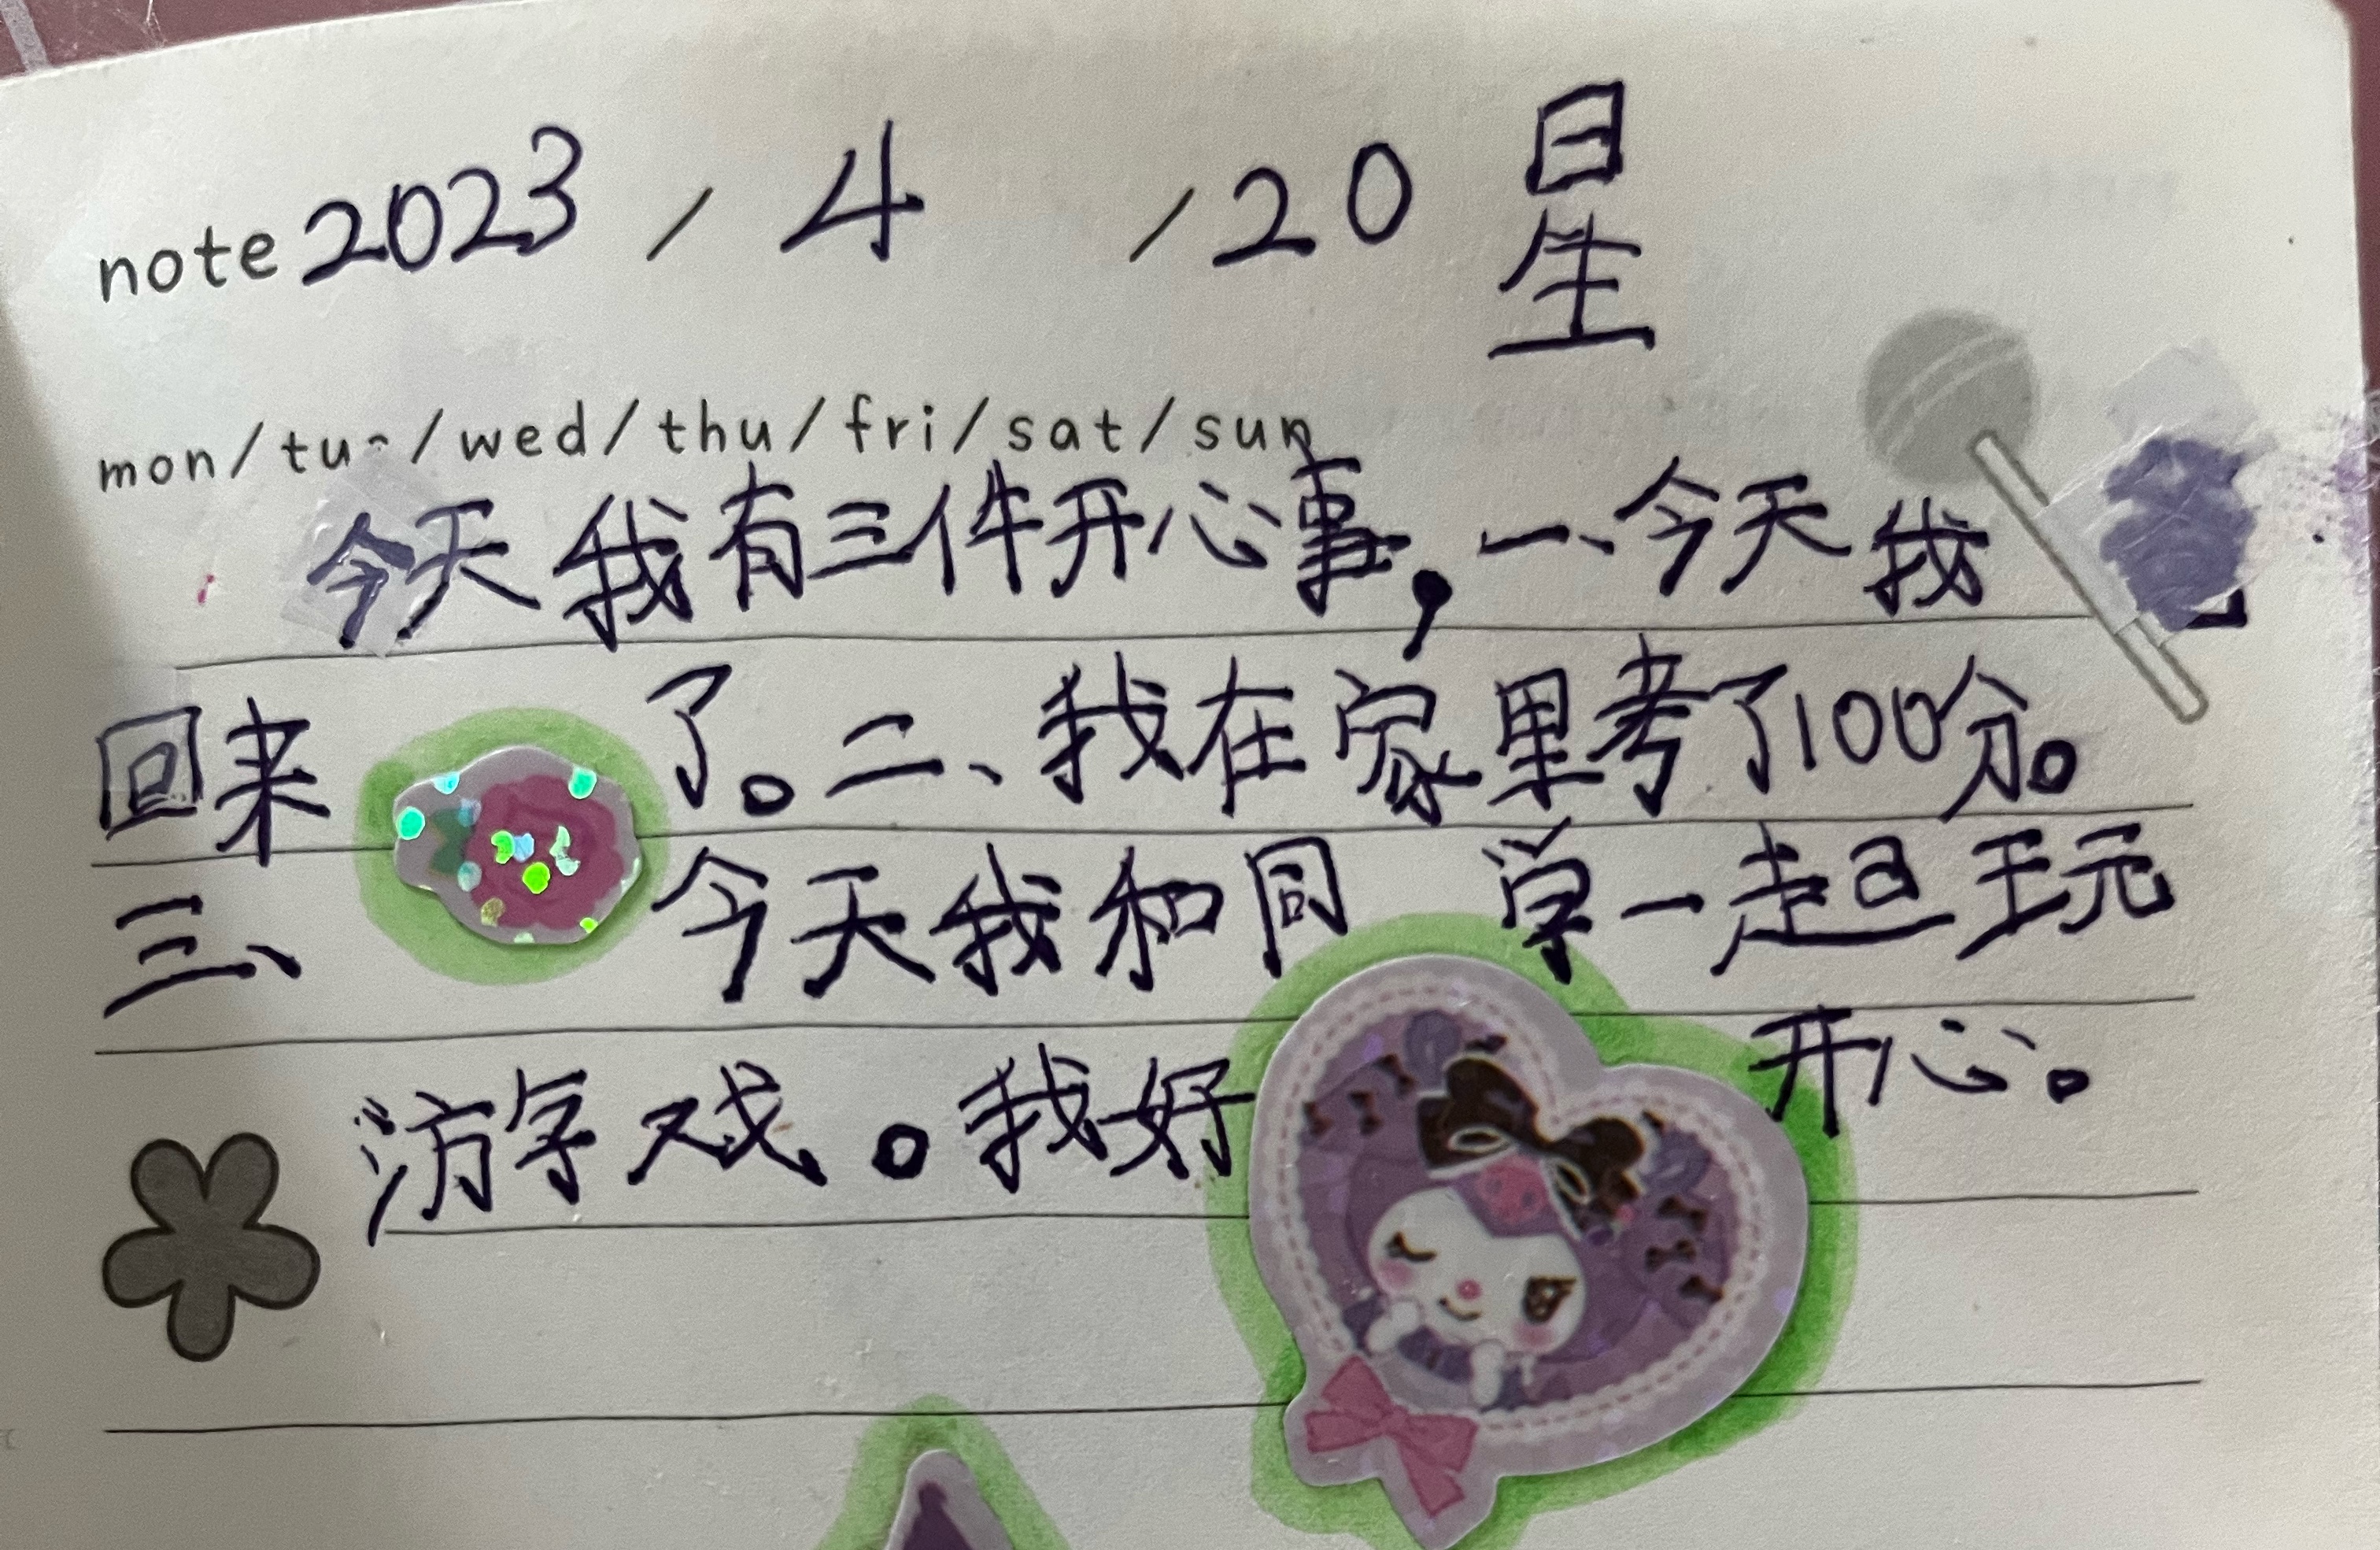 note 2023 / 4 / 20 星
mon/tue/wed/thu/fri/sat/sun
今天我有三件开心事，一、今天我
回来了。二、我在家里考了100分。
三、今天我和同学一起玩
游戏。我好开心。